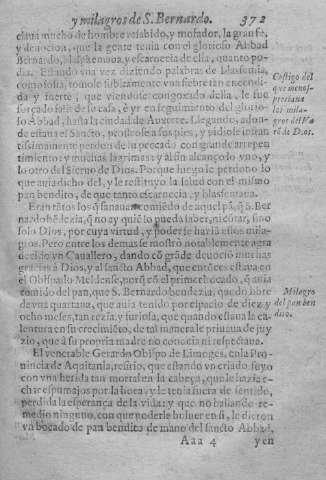 y milagros de S. Bernardo. 372
claua mucho de hombre resabido, y mofador, la gran fe,
y deuocion, que la gente tenia con el glorioso Abbad
Bernardo, blasphemaua, y escarnecia de ella, quanto po-
dia. Estando vna vez diziendo palabras de blasfemia,
como solia, tomole subitamente vna fiebre tan encendi-
da y fuerte, que viendose congoxado della, le fue
forçado salir de su casa, é yr en seguimiento del glorio-
so Abbad, hasta la ciudad de Auxerre. Llegando, adon-
de estaua el Sancto, prostrose a sus pies, y pidiole instan
tissimamente perdon de su peccado con grande arrepen
timiento: y muchas lagrimas: y al fin alcançolo vno, y
lo otro del Sieruo de Dios. Porque luego le perdono lo
que auia dicho del, y le restituyo la salud con el mismo
pan bendito, de que tanto escarnecia, y blasfemaua.
Castigo del
que menos-
preciaua
los mila-
gros del Va
rō de Dios.
Eran tātos los q̄ sanauan comiēdo de aquel pā, q̄ S. Ber
nardo bēdezia, q̄ no ay quiē lo pueda saber, ni cōtar, sino
solo Dios, por cuya virtud, y poder se hazia estos mila-
gros. Pero entre los demas se mostrò notablemente agra
decido vn Cauallero, dando cō grāde deuociō muchas
gracias a Dios, y al sancto Abbad, que entōces estaua en
el Obispado Meldense, porq̄ cō el primer bocado, q̄ auia
comido del pan, que S. Bernardo bendezia, quedo libre
de vna quartana, que auia tenido por espacio de diez y
ocho meses, tan rezia, y furiosa, que quando estaua la ca-
lentura en su crecimiēto, de tal manera le priuaua de juy
zio, que à su propria madre no conocia ni respectaua.
Milagro
del pan ben
dito.
El venerable Gerardo Obispo de Limoges, en la Pro
uincia de Aquitania, refirio, que estando vn criado suyo
con vna herida tan mortal en la cabeça, que le hazia e-
char espumajos por la boca, y le tenia fuera de sentido,
perdida la esperança de la vida: y que no hallando re-
medio ninguno, con que poderle boluer en si, le dieron
vn bocado de pan bendito de mano del sancto Abbad,
Aaa 4 y en